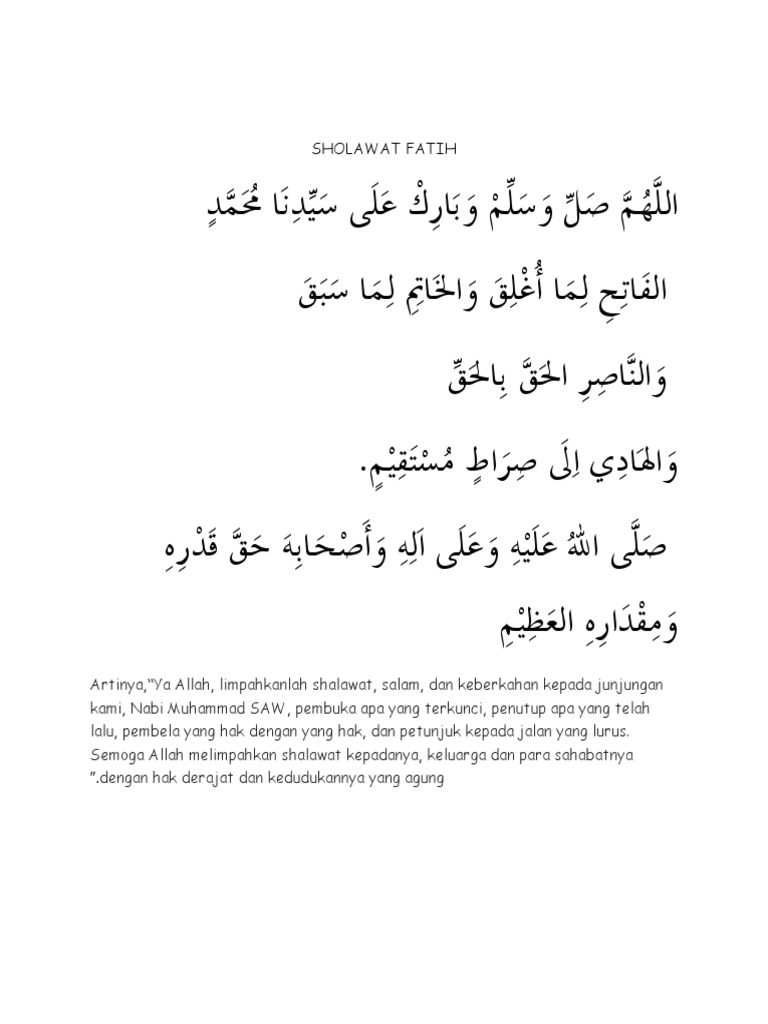 SHOLAWAT FATIH
اللَّهُمَّ صَلِّ وَسَلِّمْ وَبَارِكْ عَلَى سَيِّدِنَا مُحَمَّدٍ
الفَاتِحِ لِمَا أُغْلِقَ وَالخَاتِمِ لِمَا سَبَقَ
وَالنَّاصِرِ الحَقَّ بِالحَقِّ
وَالهَادِي اِلَى صِرَاطٍ مُسْتَقِيْمٍ.
صَلَّى اللهُ عَلَيْهِ وَعَلَى اَلِهِ وَأَصْحَابِهَ حَقَّ قَدْرِهِ
وَمِقْدَارِهِ العَظِيْمِ
Artinya,“Ya Allah, limpahkanlah shalawat, salam, dan keberkahan kepada junjungan
kami, Nabi Muhammad SAW, pembuka apa yang terkunci, penutup apa yang telah
lalu, pembela yang hak dengan yang hak, dan petunjuk kepada jalan yang lurus.
Semoga Allah melimpahkan shalawat kepadanya, keluarga dan para sahabatnya
”.dengan hak derajat dan kedudukannya yang agung